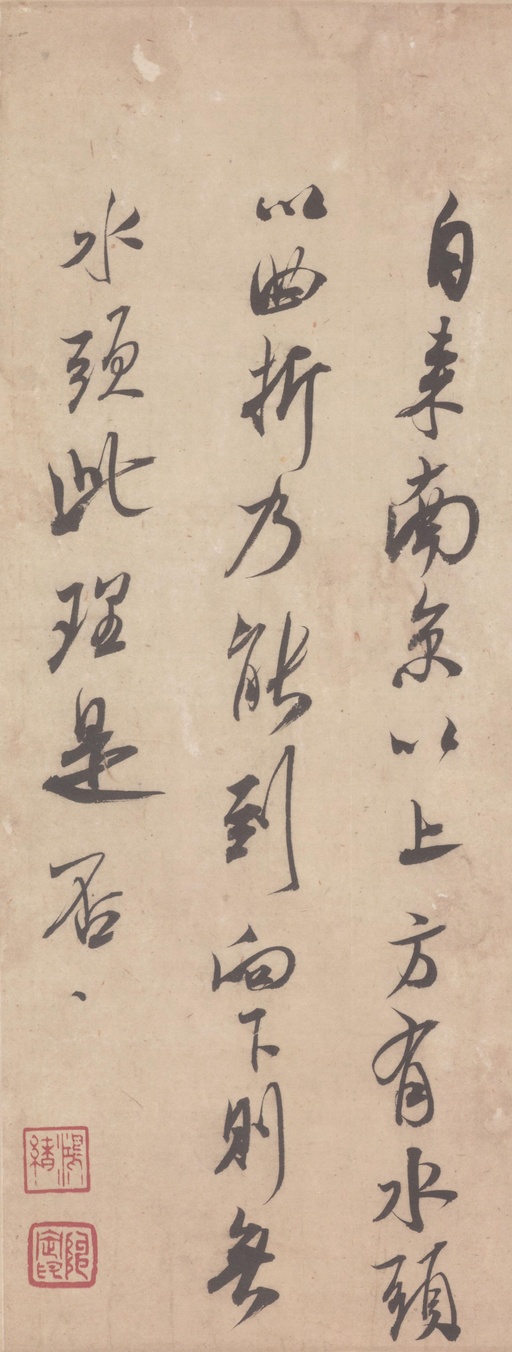 自来南京以上方有水頭
以曲折乃能到向下則無
水頭此理是否